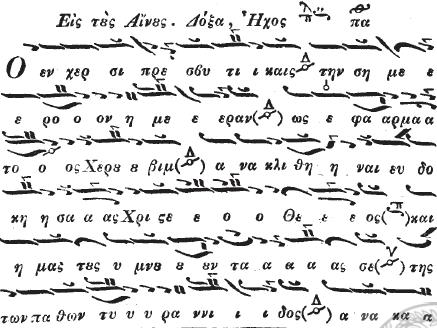 Εἰς τȣ̀ς Αἴνȣς. Δόξα, Ἦχος πα
Ο εν χερ σι πρε σβυ τι κι καις την ση με ε
ε ρο ο ον η με ε εραν (Δ) ως ε φα αρμα α
το ο ος Χερ ȣ ȣ βιμ (Δ) α να κλι θη η ναι ευ δο
κη η σα α ας Χρι ϛε ε ο ο Θε ε ε ος (π) και
η μας τȣς υ μνȣ ȣ εν τα α α ας σε (γ) της
των πα θων τυ υ υ ρα ννι ι ι δος (Δ) α να κα α